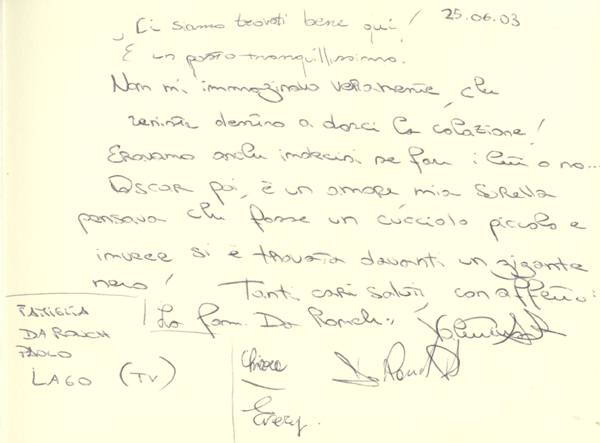 Ci siamo trovati bene qui! 25.06.03
È un posto tranquillissimo.
Non mi immaginavo veramente, che
veniste dentro a darci la colazione!
Eravamo anche indecisi se fare i letti o no...
Oscar poi, è un amore mia sorella
pensava che fosse un cucciolo piccolo e
invece si è trovata davanti un gigante
nero! Tanti cari saluti, con affetto:
La fam. Da Ronch:
FAMIGLIA
DA RONCH
PAOLO
LAGO (TV)
Chiara
Every.